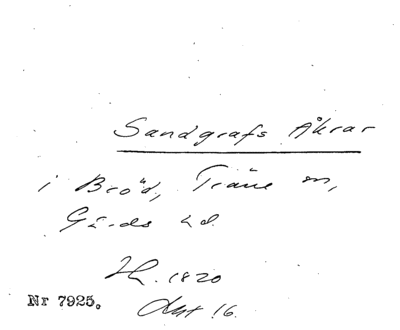 Sandgrafs Åkrar
i Bröd, Träne sn,
Gärds hd.
1820
Nr 7925. Akt 16.